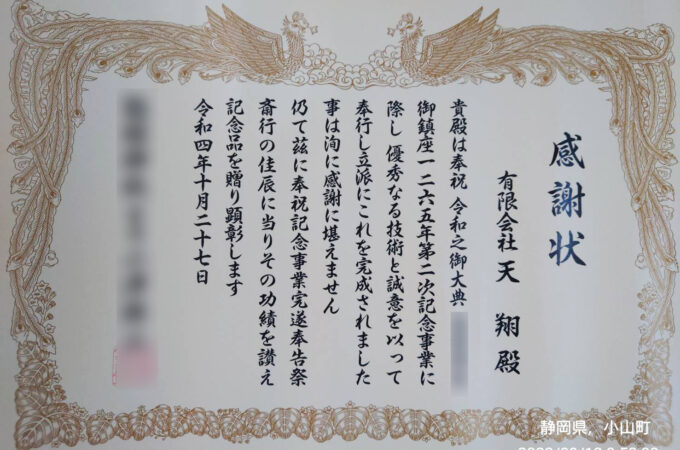 感謝状
有限会社 天 翔 殿
貴殿は奉祝 令和之御大典
御鎮座一二六五年第二次記念事業に
際し 優秀なる技術と誠意を以って
奉行し立派にこれを完成されました
事は洵に感謝に堪えません
仍て茲に奉祝記念事業完遂奉告祭
斎行の佳辰に当りその功績を讃え
記念品を贈り顕彰します
令和四年十月二十七日
静岡県, 小山町